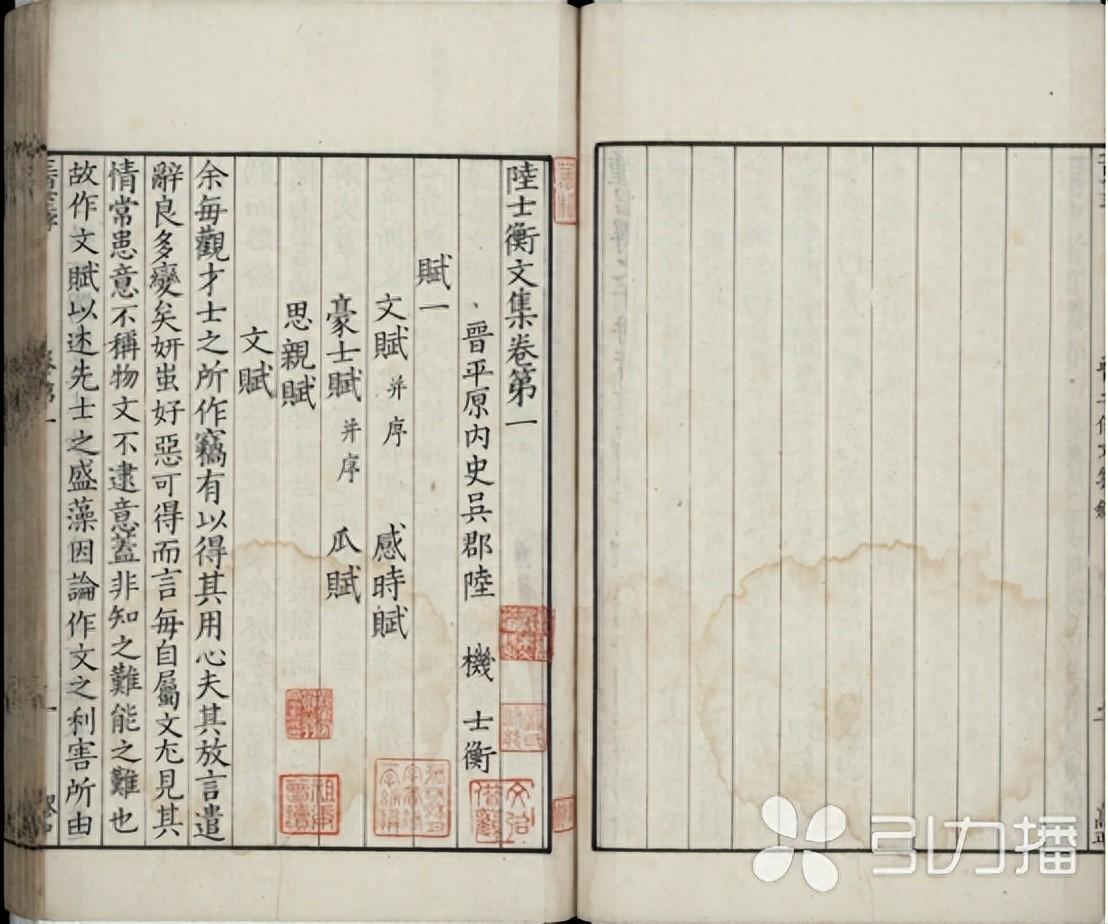 陸士衡文集卷第一
晉平原内史吳郡陸 機 士衡
賦一
文賦 并序 感時賦
豪士賦 并序 瓜賦
思親賦
文賦
余每觀才士之所作竊有以得其用心夫其放言遣
辭良多變矣妍蚩好惡可得而言每自屬文尤見其
情常患意不稱物文不逮意蓋非知之難能之難也
故作文賦以述先士之盛藻因論作文之利害所由
引力播